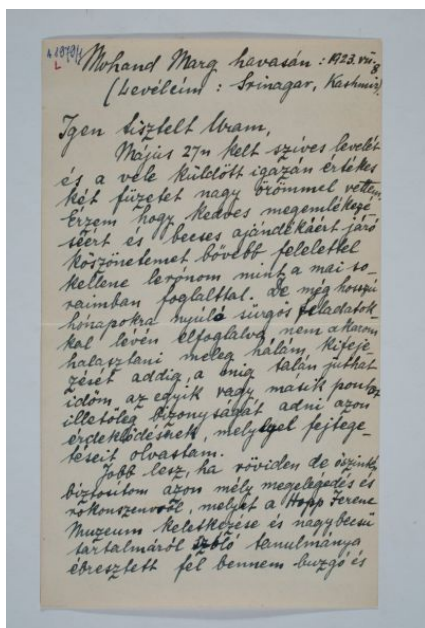 A 1979/1
L
Mohand Marg havasán : 1923. VII. 8
(Levélcím : Srinagar, Kashmir)
Igen tisztelt Uram,
Május 27n kelt szives levelét
és a vele küldött igazán értékes
két füzetet nagy örömmel vettem.
Érzem hogy kedves megemlékezé
séért és becses ajándékáért járó
köszönetemet bővebb felelettel
kellene lerónom mint a mai so_
raimban foglalttal. De még hosszú
hónapokra nyúló sürgős feladatok
kal lévén elfoglalva nem akarom
halasztani meleg hálám kifeje_
zését addig, a mig talán juthat
időm az egyik vagy másik pontot
illetőleg bizonyságát adni azon
érdeklődésnek, melylyel fejtege_
téseit olvastam.
Jobb lesz, ha röviden de őszintén
biztosítom azon mély megelégedés és
rokonszenvről, melyet a Hopp Ferenc
Muzeum keletkezése és nagybecsü
tartalmáról szóló tanulmánya
ébresztett fel bennem buzgó és